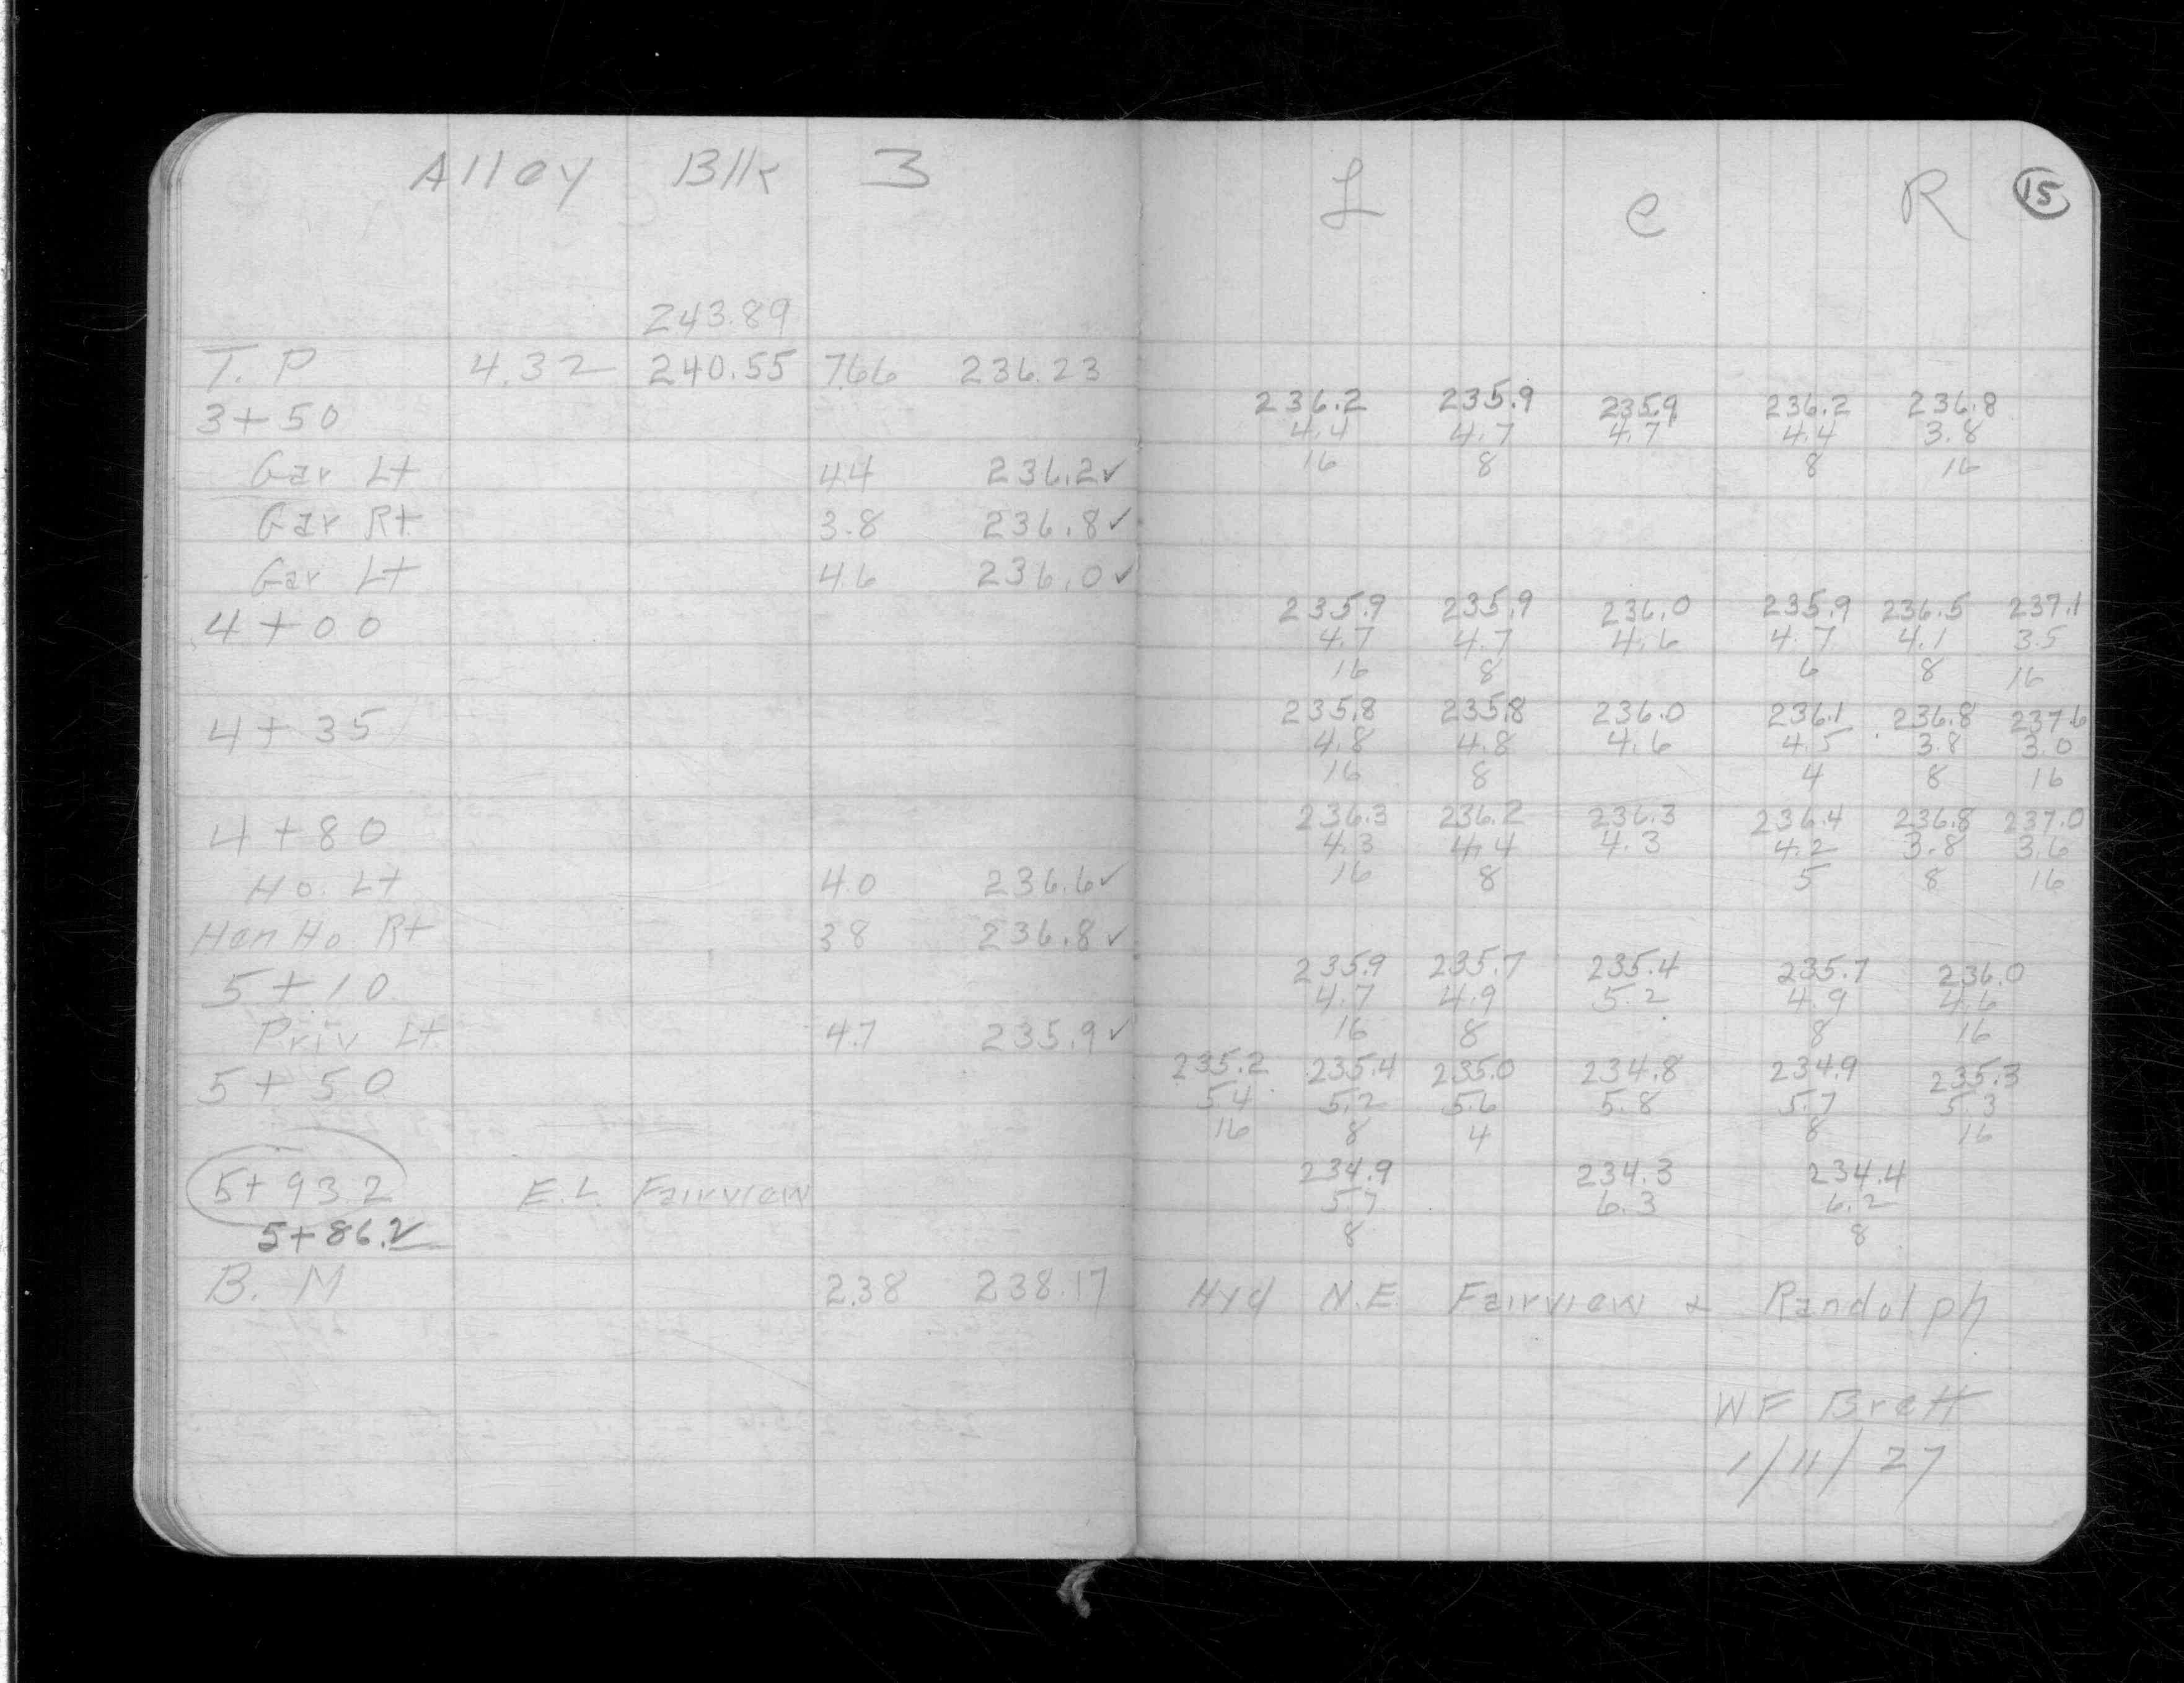 Alley Blk 3
L C R 15
243.89
T. P 4.32 240.55 7.66 236.23
236.2 235.9 235.9 236.2 236.8
3+50 4.4 4.7 4.7 4.4 3.8
Gar Lt 4.4 236.2✓ 16 8 8 16
Gar Rt 3.8 236.8✓
Gar Lt 4.6 236.0✓
235.9 235.9 236.0 235.9 236.5 237.1
4+00 4.7 4.7 4.6 4.7 4.1 3.5
16 8 6 8 16
235.8 235.8 236.0 236.1 236.8 237.6
4+35 4.8 4.8 4.6 4.5 3.8 3.0
16 8 4 8 16
236.3 236.2 236.3 236.4 236.8 237.0
4+80 4.3 4.4 4.3 4.2 3.8 3.6
Ho. Lt 4.0 236.6✓ 16 8 5 8 16
Hen Ho. Rt 3.8 236.8✓
235.9 235.7 235.4 235.7 236.0
5+10 4.7 4.9 5.2 4.9 4.6
Priv Lt. 4.7 235.9✓ 16 8 8 16
235.2 235.4 235.0 234.8 234.9 235.3
5+50 5.4 5.2 5.6 5.8 5.7 5.3
16 8 4 8 16
234.9 234.3 234.4
5+93.2 E.L. Fairview 5.7 6.3 6.2
5+86.2 8 8
B. M 2.38 238.17 Hyd N.E. Fairview & Randolph
WF Brett
1/11/27